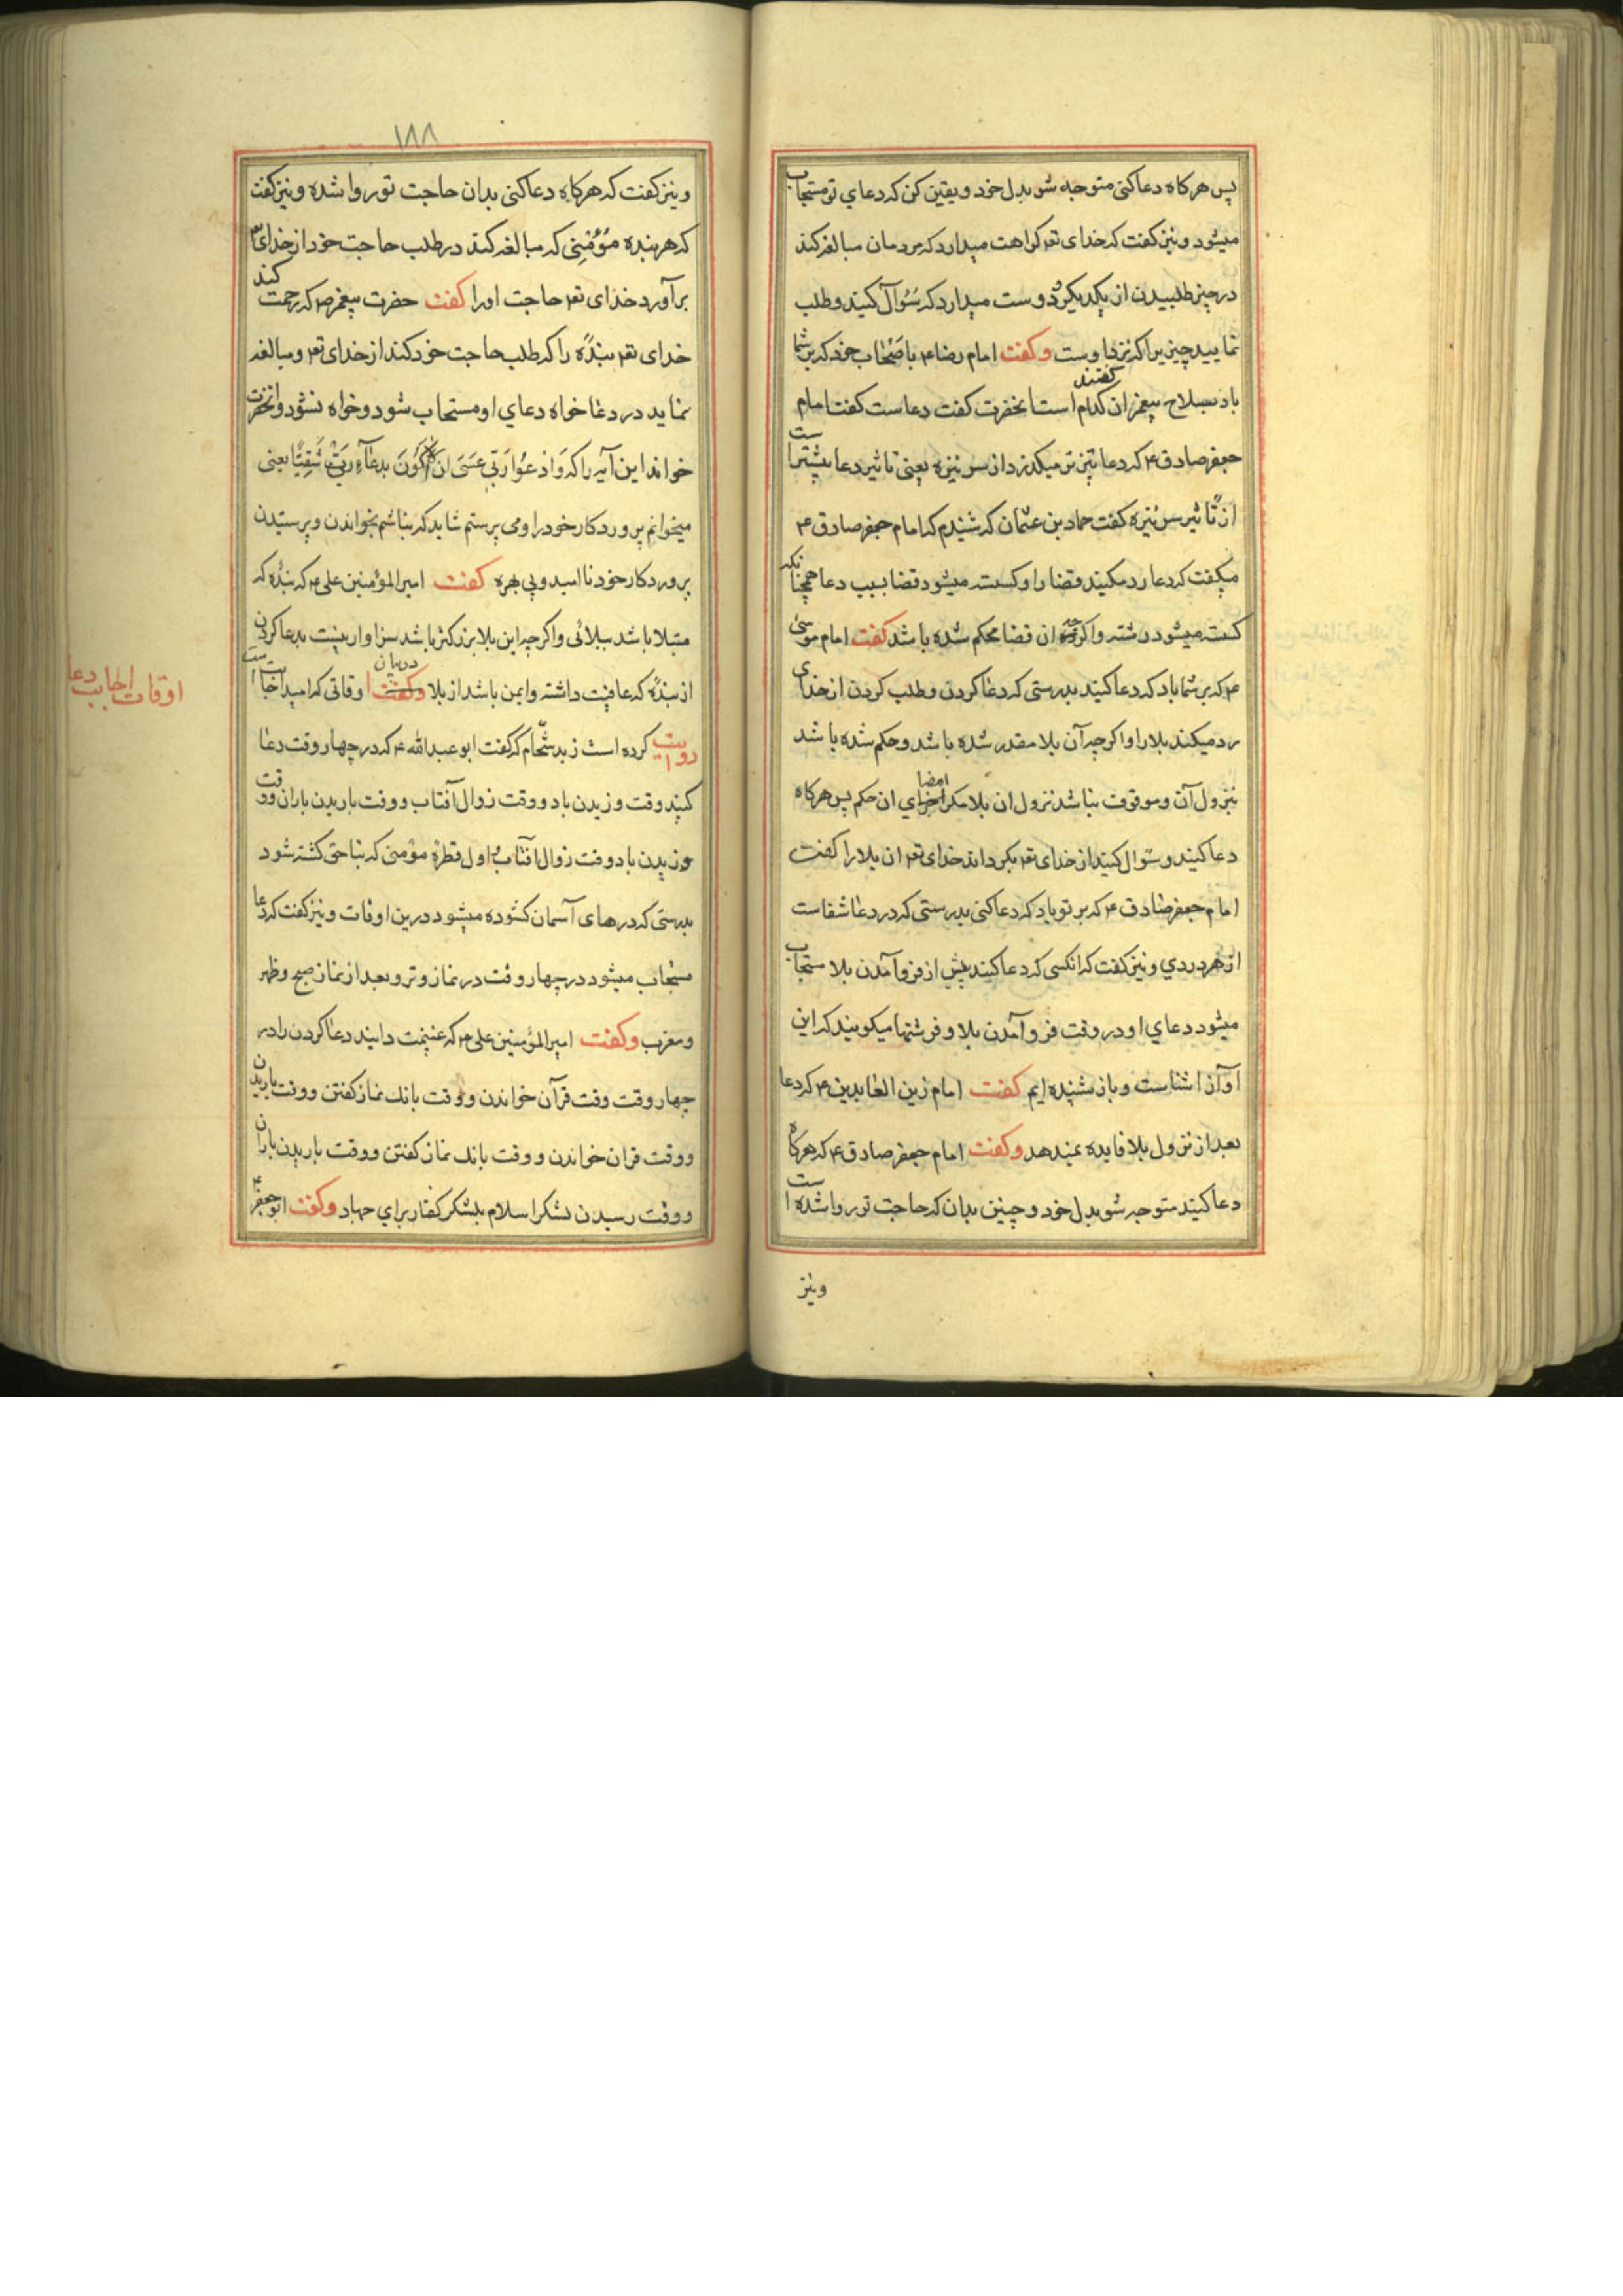 پس هرکاه دعا کنی متوجه شو بدل خود و یقین کن که دعای تو مستجاب
میشود و نیز کفت که خدای تع کراهت میدارد که مردمان مبالغه کنند
در چیز طلبیدن از یکدیکر و دوست میدارد که سُوال کنید و طلب
نمایید چیزیرا که نزد اوست وکفت امام رضا ع باصحاب خود که بر شما
باد بسلاح پیغمبران کفتند کدام است انحضرت کفت دعاست کفت امام
جعفر صادق ع که دعا تیزتر میکذرد از سر نیزه یعنی تاثیر دعا بیشتر است
از تاثیر سر نیزه کفت حماد بن عثمان که شنیدم که امام جعفر صادق ع
میکفت که دعا رد میکند قضا را و کسسته میشود قضا بسبب دعا همچنانکه
کسسته میشود رشته و اکرچه ان قضا محکم شده باشد کفت امام موسی
ع که بر شما باد که دعا کنید بدرستی که دعا کردن و طلب کردن از خدای
رد میکند بلا را و اکرچه آن بلا مقدر شده باشد و حکم شده باشد
بنزول آن و موقوف نباشد نزول ان بلا مکر امضای ان حکم پس هرکاه
دعا کنید و سوال کنید از خدای تع بکرداند خدای تع ان بلا را کفت
امام جعفر صادق ع که بر تو باد که دعا کنی بدرستی که در دعا شفاست
از هر دردی و نیز کفت که انکسی که دعا کند پیش از فرو آمدن بلا مستجاب
میشود دعای او در وقت فرو آمدن بلا و فرشتها میکویند که این
آواز اشناست و باز شنیده ایم کفت امام زین العابدین ع که دعا
بعد از نزول بلا فایده نمیدهد وکفت امام جعفر صادق ع که هرکاه
دعا کنید متوجه شو بدل خود و چنین بدان که حاجت تو روا شده است
ونیز
۱۸۸
ونیز کفت که هرکاه دعا کنی بدان حاجت تو روا شده و نیز کفت
که هر بنده مؤمنی که مبالغه کند در طلب حاجت خود از خدای
برآورد خدای تع حاجت او را کفت حضرت پیغمبر ص که رحمت کند
خدای تع بندهٔ را که طلب حاجت خود کند از خدای تع و مبالغه
نماید در دعا خواه دعای او مستجاب شود و خواه نشود و انحضرت
خواند این آیه را که وَادْعُوا رَبِّی عَسَی اَن لا اَکُونَ بِدُعَآءِ رَبِّی شَقِیًّا یعنی
میخوانم پروردکار خود را و می پرستم شاید که نباشم بخواندن و پرستیدن
پروردکار خود ناامید و بی بهره کفت امیر المؤمنین علی ع که بندهٔ که
مبتلا باشد ببلائی و اکرچه این بلا بزرکتر باشد سزاوارتر نیست بدعا کردن
از بندهٔ که عافیت داشته و ایمن باشد از بلا وکفت در بیان اوقاتی که امید اجابت است
اوقات اجابت دعا
روایت کرده است زید شحّام که کفت ابو عبد الله ع که در چهار وقت دعا
کنید وقت وزیدن باد و وقت زوال آفتاب و وقت باریدن باران و وقت
وزیدن باد وقت زوال افتاب و اول قطرهٔ مؤمنی که بناحق کشته شود
بدرستی که درهای آسمان کشوده میشود درین اوقات و نیز کفت که دعا
مستجاب میشود در چهار وقت در نماز وتر و بعد از نماز صبح و ظهر
ومغرب وکفت امیر المؤمنین علی ع که غنیمت دانید دعا کردن را در
چهار وقت وقت قرآن خواندن و وقت بانک نماز کفتن و وقت باریدن
ووقت قران خواندن و وقت بانک نماز کفتن و وقت باریدن باران
ووقت رسیدن لشکر اسلام بلشکر کفار برای جهاد وکفت ابو جعفر ع